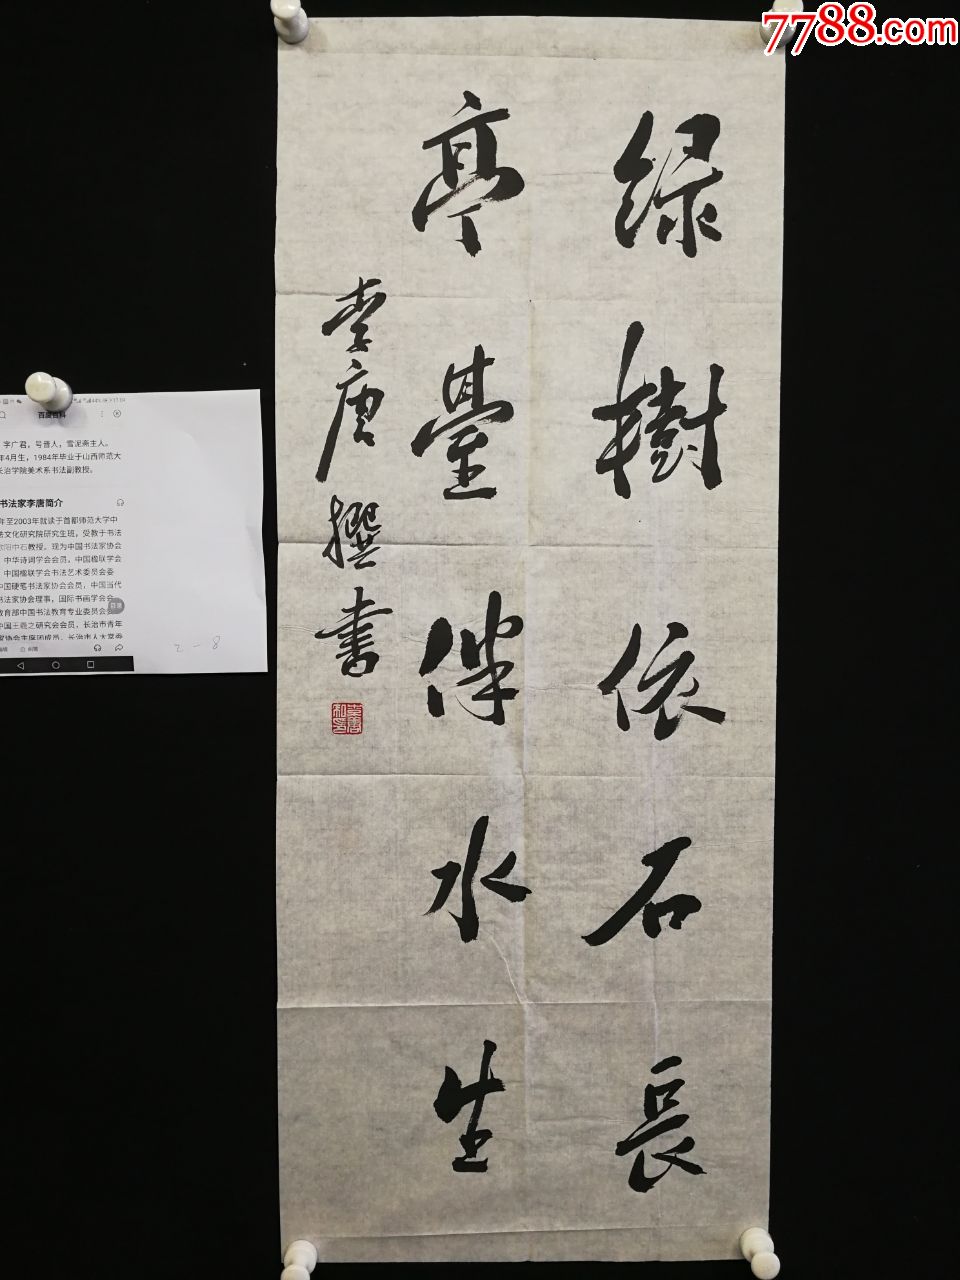 7788.com
绿树依石長
亭臺伴水生
李唐撰書
李唐私印
百度百科
字广君，号晋人，雪泥斋主人。
年4月生，1984年毕业于山西师范大
长治学院美术系书法副教授。
书法家李唐简介
年至2003年就读于首都师范大学中
法文化研究院研究生班，受教于书法
欧阳中石教授。现为中国书法家协会
中华诗词学会会员，中国楹联学会
中国楹联学会书法艺术委员会委
中国硬笔书法家协会会员，中国当代
书法家协会理事，国际书画学会会
教育部中国书法教育专业委员会委
中国王羲之研究会会员，长治市青年
家协会主席团成员，长治市人大常委
目录
2-8